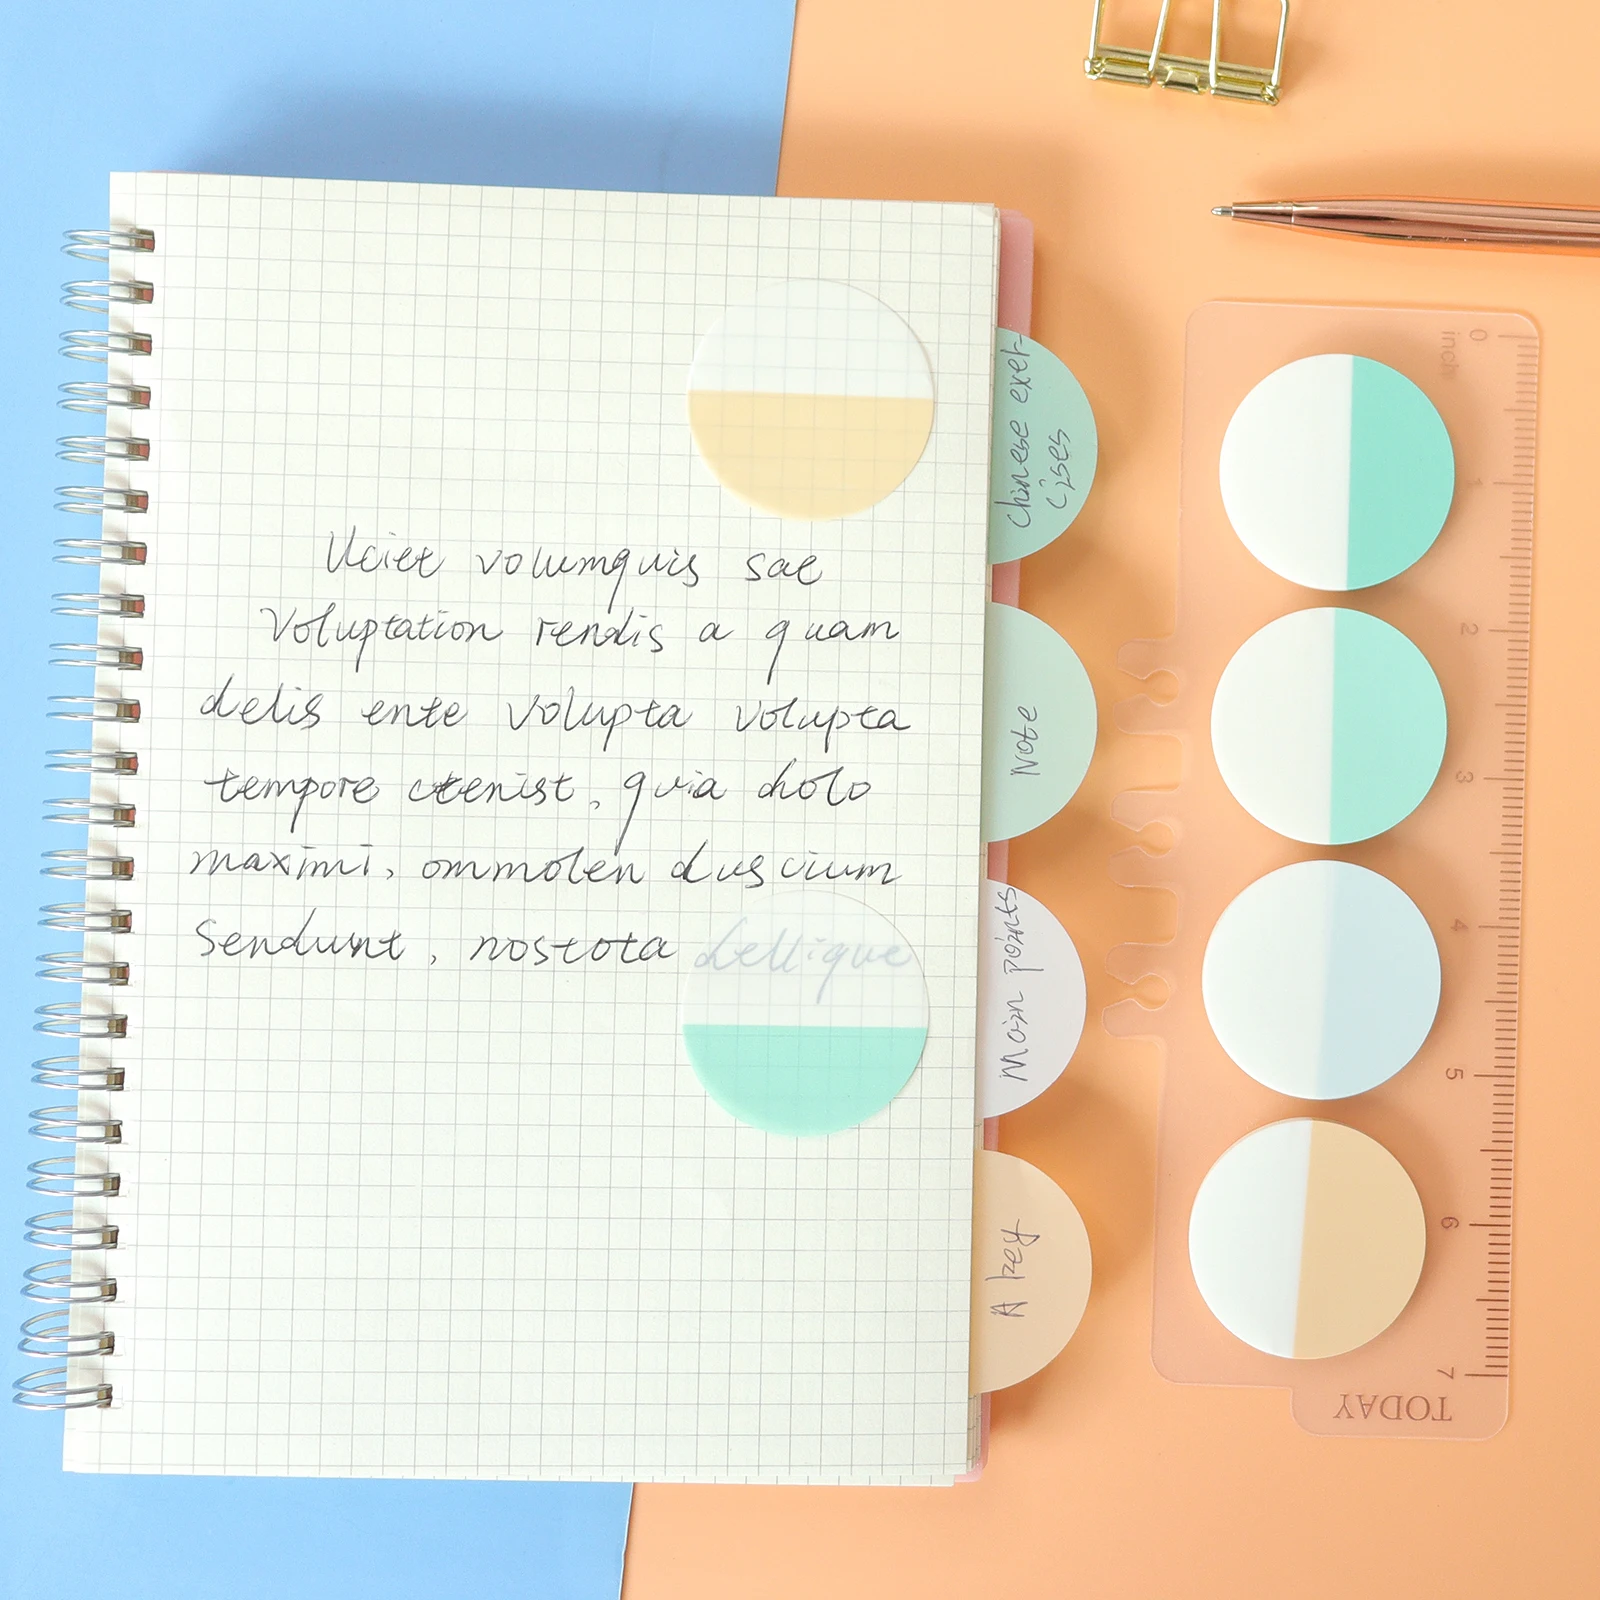 Uciet volumquis sae
Voluptation rendis a quam
delis ente volupta volupta
tempore ctenist, quia dolo
maximi, ommolen duscium
Sendunt, nostota dellique
Chinese exer-
cises
Note
Main points
A key
0
inch
1
2
3
4
5
6
7
TODAY